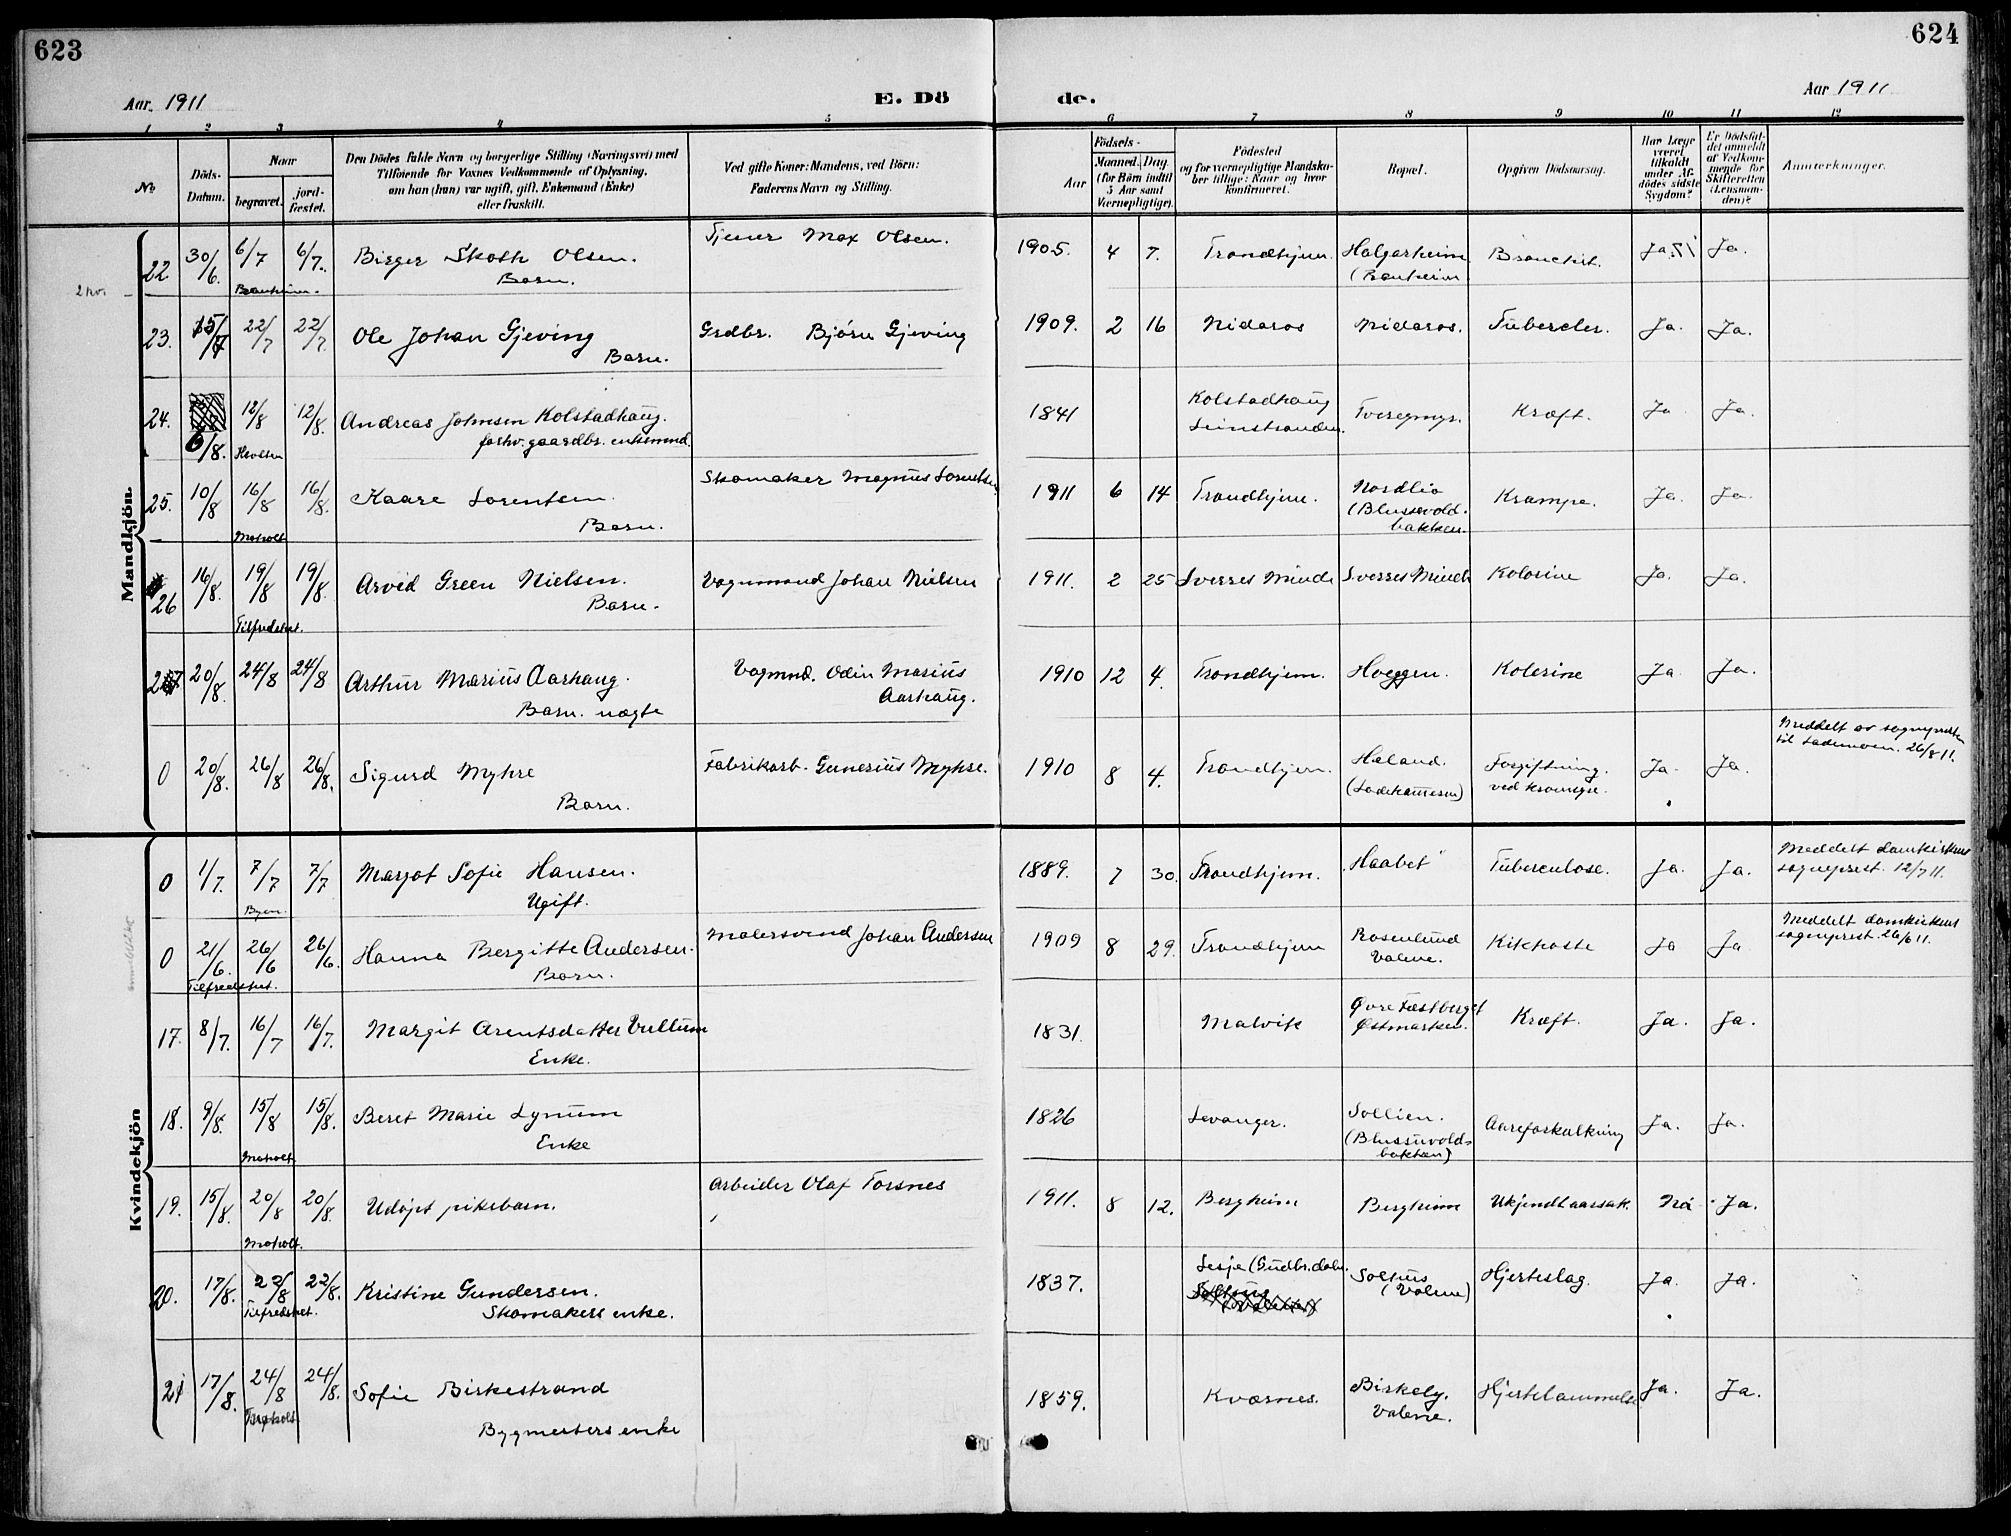 623
624
Aar 1911
E. Dö
de.
Aar 1911
1 2 3 4 5 6 7 8 9 10 11 12
No
Döds-Datum.
Naar
begravet.
jord-fæstet.
Den Dödes fulde Navn og borgerlige Stilling (Næringsvei) med
Tilföiende for Voxnes Vedkommende af Oplysning,
om han (hun) var ugift, gift, Enkemand (Enke)
eller fraskilt.
Ved gifte Koner: Mandens, ved Börn:
Faderens Navn og Stilling.
Födsels-
Aar
Maaned. Dag
(for Börn indtil
5 Aar samt
Værnepligtige).
Födested
og for værnepligtige Mandska-
ber tillige: Naar og hvor
konfirmeret.
Bopæl.
Opgiven Dödsaarsag.
Har Læge
været
tilkaldt
under Af-
dödes sidste
Sygdom?
Er Dödsfal-
det anmeldt
af Vedkom-
mende for
Skifteretten
(Lensman-
den)?
Anmærkninger.
Mandkjön.
22 30/6. 6/7 6/7. Birger Skoth Olsen. Tjener Max Olsen. 1905. 4 7. Trondhjem Halgarheim Bronchit. Ja. Ja.
Barn. (
23. 15/7 22/7 22/7. Ole Johan Gjeving Grdbr. Bjórn Gjeving 1909. 2 16 Nidaros Nidaros. Tubercler. Ja. Ja.
Barn.
24. 6/8. 12/8 12/8. Andreas Johnsen Kolstadhaug. 1841 Kolstadhaug Tveregmyr. Kræft. Ja Ja.
forhv. gaardbr. enkemnd. Leinstranden.
25. 10/8 16/8 16/8. Kaare Lorentsen. Skomaker Magnus Lorentsen 1911 6 14 Trondhjem. Nordlia Krampe. Ja. Ja.
Moholt Barn. (Blussevold-
bakken.
26 16/8. 19/8 19/8. Arvid Green Nielsen. Vognmand Johan Nielsen 1911. 2 25 Sverres Minde Sverres Minde Kolerine Ja. Ja.
Tilfredshet. Barn.
27 20/8. 24/8 24/8 Arthur Marius Aarhaug. Vogmnd. Odin Marius 1910 12 4. Trondhjem. Hoeggen. Kolerine Ja. Ja.
Barn. uægte Aarhaug.
0 20/8. 26/8 26/8. Sigurd Myhre Fabrikarb. Gunerius Myhre. 1910 8 4. Trondhjem. Haland. Forgiftning. Ja. Ja. Meddelt av sogneprsten
Barn. (Ladehammeren) ved krampe. til Lademoen. 26/8 11.
Kvindekjön
0 1/7. 7/7 7/7 Margot Sofie Hansen. 1889. 7 30. Trondhjem. Haabet Tuberculose. Ja. Ja. Meddelt Domkirkens
Byen. Ugift. sogneprest. 12/7 11.
0 21/6. 26/6 26/6. Hanna Bergitte Andersen. Malersvend Johan Andersen 1909 8 29. Trondhjem Rosenlund Kikhoste Ja Ja Meddelt domkirkens
Tilfredshet. Barn. Valene. sogneprest. 26/6 11.
17. 8/7. 16/7 16/7. Margit Arentsdatter Vullum 1831. Malvik Øvre Fæstberget Kræft. Ja. Ja.
Enke. Østmarken.
18. 9/8. 15/8 15/8. Beret Marie Lynum 1826 Levanger. Sollien. Aareforkalkning Ja. Ja.
Moholt Enke (Blussuvolds-
bakken)
19. 15/8. 20/8 20/8. Udøpt pikebarn. Arbeider Olaf Torsnes 1911. 8 12. Bergheim Bergheim Ukjendt aarsak. Nei Ja.
Moholt.
20. 17/8. 22/8 22/8. Kristine Gundersen. 1837. Lesje (Gudbr.dalen. Solhus Hjerteslag. Ja. Ja.
Tilfredshet. Skomakers enke. (Valene)
21 17/8. 24/8 24/8. Sofie Birkestrand 1859. Kværnes. Birkely. Hjertelammelse Ja. Ja.
Bygmesters enke Valene.